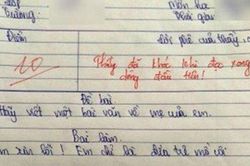 Điểm
Lời phê của thầy
10
Thầy đã khóc khi đọc xong
dòng đầu tiên!
Đề bài
Hãy viết một bài văn về mẹ của em.
Bài làm
xin lỗi! Em chỉ là đứa trẻ mồ côi